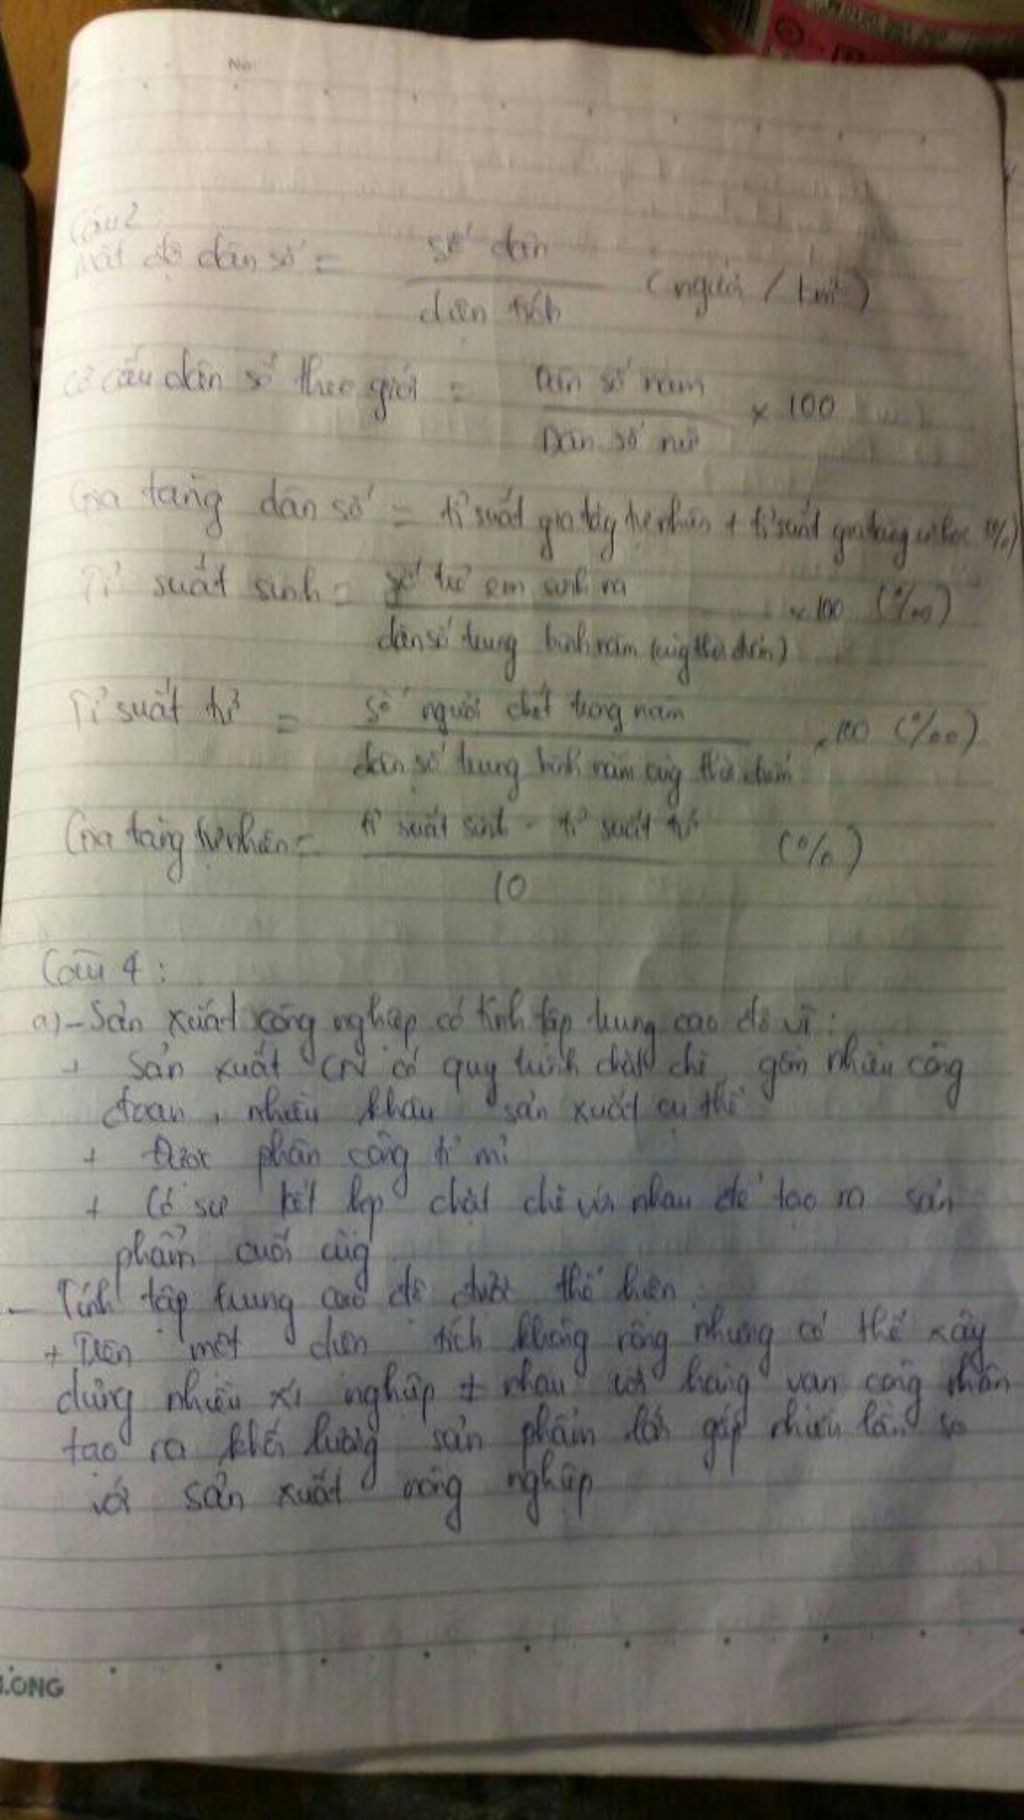 No:
Câu 2
mật độ dân số = số dân / diện tích (người / km²)
Cơ cấu dân số theo giới = Dân số nam / Dân số nữ × 100
Gia tăng dân số = tỉ suất gia tăng tự nhiên + tỉ suất gia tăng cơ học (%)
Tỉ suất sinh = số trẻ em sinh ra / dân số trung bình năm (cùng thời điểm) × 100 (‰)
Tỉ suất tử = số người chết trong năm / dân số trung bình năm cùng thời điểm × 100 (‰)
Gia tăng tự nhiên = tỉ suất sinh - tỉ suất tử / 10 (%)
Câu 4 :
a) - Sản xuất công nghiệp có tính tập trung cao độ vì :
+ Sản xuất CN có quy trình chặt chẽ gồm nhiều công
đoạn , nhiều khâu sản xuất cụ thể
+ Được phân công tỉ mỉ
+ Có sự kết hợp chặt chẽ với nhau để tạo ra sản
phẩm cuối cùng
- Tính tập trung cao độ được thể hiện :
+ Trên một diện tích không rộng nhưng có thể xây
dựng nhiều xí nghiệp ≠ nhau với hàng vạn công nhân
tạo ra khối lượng sản phẩm lớn gấp nhiều lần so
với sản xuất nông nghiệp